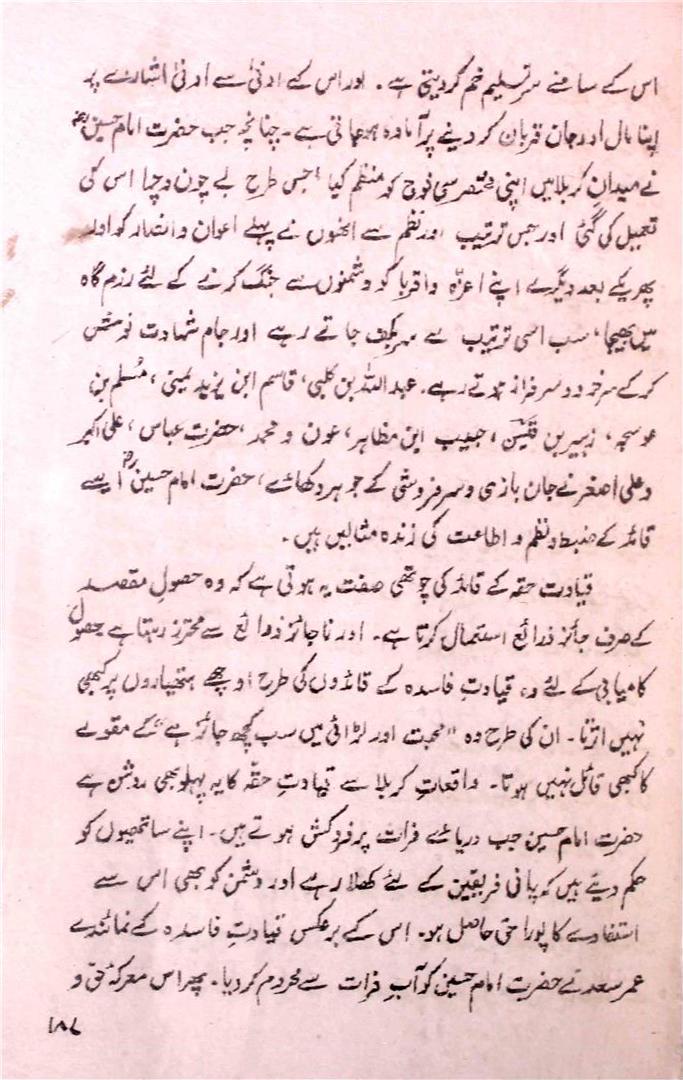 اس کے سامنے سرتسلیم خم کر دیتی ہے ۔ اور اس کے ادنیٰ سے ادنیٰ اشارے پر
اپنا مال اور جان قربان کر دینے پر آمادہ ہو جاتی ہے ۔ چنانچہ جب حضرت امام حسینؓ
نے میدانِ کربلا میں اپنی مختصر سی فوج کو منظم کیا ، جس طرح بے چون و چرا اس کی
تعمیل کی گئی اور جس ترتیب اور نظم سے انھوں نے پہلے اعوان و انصار کو اور
پھر یکے بعد دیگرے اپنے اعزّہ و اقربا کو دشمنوں سے جنگ کرنے کے لئے رزم گاہ
میں بھیجا ، سب اسی ترتیب سے سربکف جاتے رہے اور جامِ شہادت نوش
کر کے سرخرو و سرفراز ہوتے رہے ۔ عبداللہ بن کلبی ، قاسم ابن یزید یمینی ، مُسلم بن
عوسجہ ، زہیر بن قین ، حبیب ابن مظاہر ، عون و محمد ، حضرت عباس ، علی اکبر
و علی اصغر نے جان بازی و سرفروشی کے جوہر دکھائے ، حضرت امام حسینؓ ایسے
قائد کے ضبط و نظم و اطاعت کی زندہ مثالیں ہیں ۔
قیادت حقہ کے قائد کی چوتھی صفت یہ ہوتی ہے کہ وہ حصولِ مقصد
کے صرف جائز ذرائع استعمال کرتا ہے ۔ اور ناجائز ذرائع سے محترز رہتا ہے حصول
کامیابی کے لئے وہ قیادتِ فاسدہ کے قائدوں کی طرح اوچھے ہتھیاروں پر کبھی
نہیں اترتا ۔ ان کی طرح وہ "محبت اور لڑائی میں سب کچھ جائز ہے" کے مقولے
کا کبھی قائل نہیں ہوتا ۔ واقعاتِ کربلا سے قیادتِ حقّہ کا یہ پہلو بھی روشن ہے
حضرت امام حسین جب دریائے فرات پر فروکش ہوتے ہیں ۔ اپنے ساتھیوں کو
حکم دیتے ہیں کہ پانی فریقین کے لئے کھلا رہے اور دشمن کو بھی اس سے
استفادے کا پورا حق حاصل ہو ۔ اس کے برعکس قیادتِ فاسدہ کے نمائندے
عمر سعد نے حضرت امام حسین کو آبِ فرات سے محروم کر دیا ۔ پھر اس معرکۂ حق و
۱۸۷